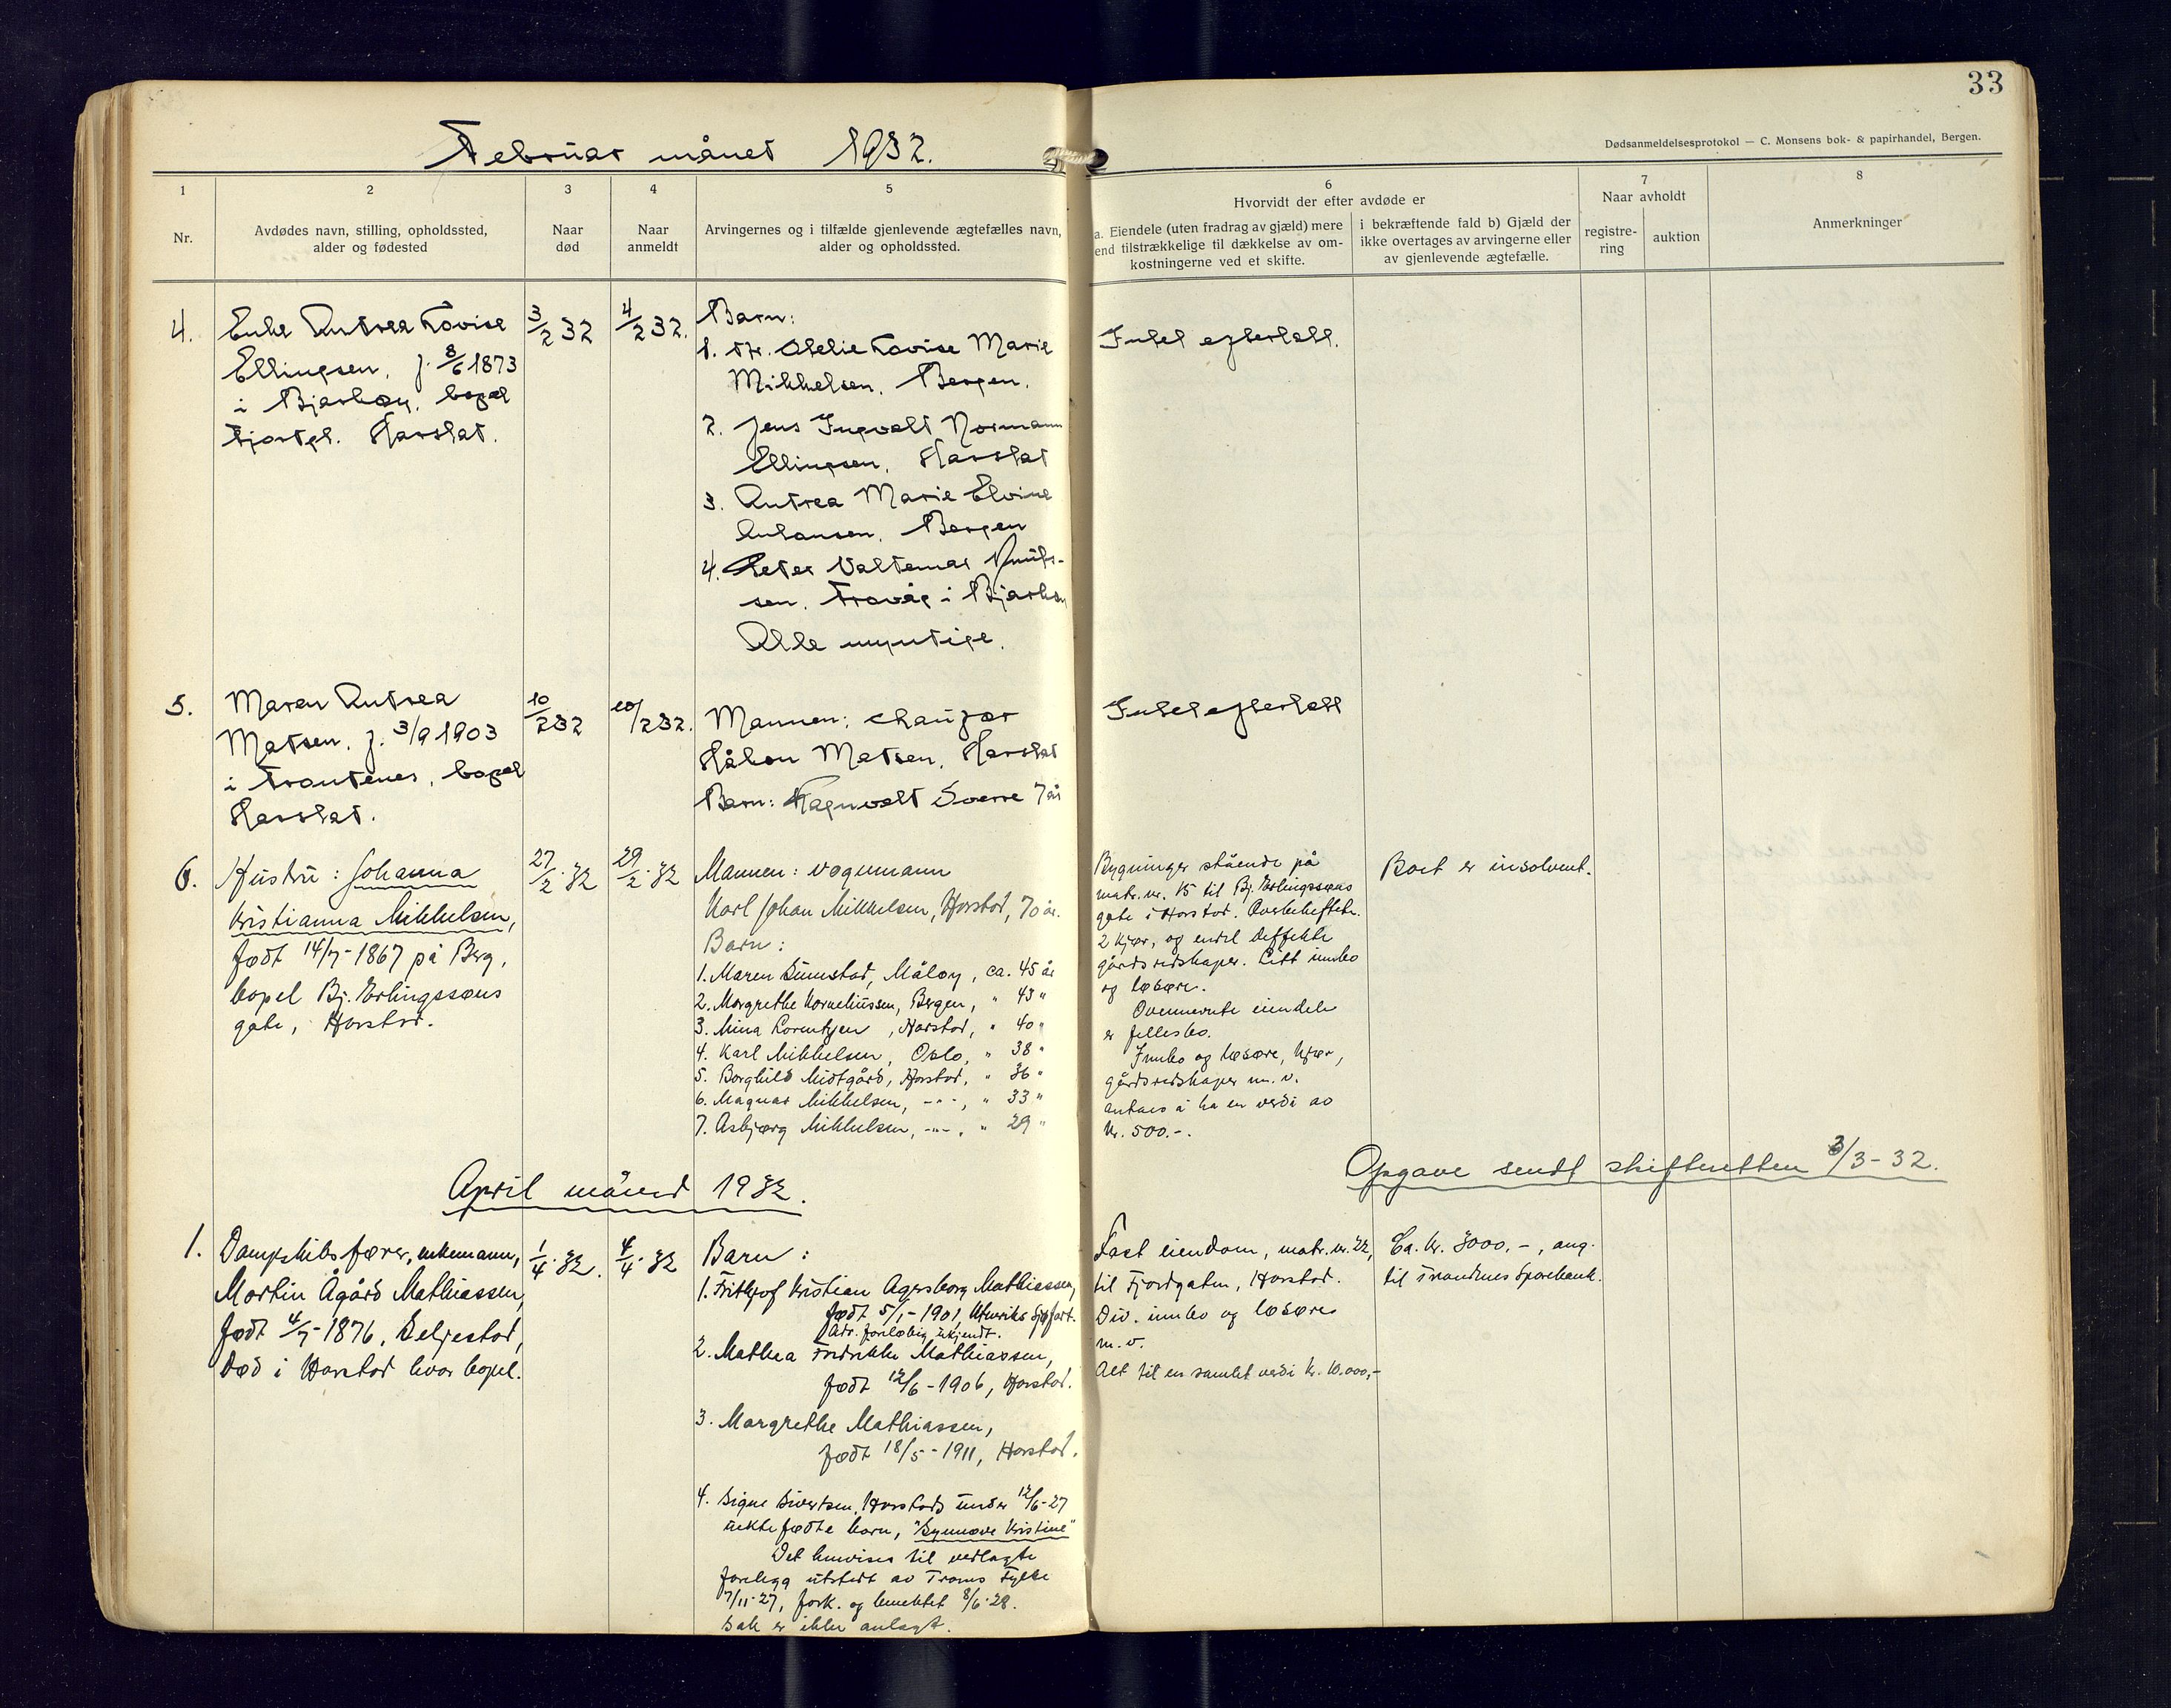 33
Februar månet 1932.
Dødsanmeldelsesprotokol — C. Monsens bok- & papirhandel, Bergen.
1
Nr.
2
Avdødes navn, stilling, opholdssted,
alder og fødested
3
Naar
død
4
Naar
anmeldt
5
Arvingernes og i tilfælde gjenlevende ægtefælles navn,
alder og opholdssted.
6
Hvorvidt der efter avdøde er
a. Eiendele (uten fradrag av gjæld) mere
end tilstrækkelige til dækkelse av om-
kostningerne ved et skifte.
i bekræftende fald b) Gjæld der
ikke overtages av arvingerne eller
av gjenlevende ægtefælle.
7
Naar avholdt
registre-
ring
auktion
8
Anmerkninger
4.
Enke Antrea Lovise
Ellingsen, f. 8/6 1873
i Bjarkøy, bopel
Fjortgt. Harstat.
3/2 32
4/2 32.
Barn:
1. Fr. Ovelie Lovise Marie
Mikkelsen, Bergen.
2. Jens Ingvalt Normann
Ellingsen, Harstat
3. Antrea Marie Elvine
Johansen, Bergen
4. Peter Valtemar Knut-
sen, i Bjarkøy
Alle myntige.
Intet efterlatt.
5.
Maren Antrea
Matsen, f. 3/9 1903
i Trontenes, bopel
Harstat.
10/2 32
10/2 32.
Mannen: chaufør
Håkon Matsen, Harstat
Barn: Ragnvalt Sverre 7 år
Intet efterlatt
6.
Hustru: Johanna
Kristianna Mikkelsen,
født 14/7-1867 på Berg,
bopel Bj. Erlingssøns
gate, Harstad.
27/2.32
29/2.32
Mannen: vognmann
Karl Johan Mikkelsen, Harstad, 70 år.
Barn:
1. Maren Sunnstad, Måløy, ca. 45 år
2. Margrethe Korneliussen, Bergen, " 43 "
3. Mina Lorentzen, Harstad, " 40 "
4. Karl Mikkelsen, Oslo, " 38 "
5. Borghild Midtgård, Harstad, " 36 "
6. Magnar Mikkelsen, -"-, " 33 "
7. Asbjørg Mikkelsen, -"-, " 29 "
Bygninger stående på
matr. nr. 15 til Bj. Erlingssøns
gate i Harstad. Overbeheftet.
2 kjør, og endel deffekte
gårdsredskaper. Litt innbo
og løsøre.
Ovennevnte eiendele
er fellesbo.
Innbo og løsøre, kjør,
gårdsredskaper m.v.
antaes å ha en verdi av
kr. 500.-.
Boet er insolvent.
Opgave sendt skifteretten 3/3-32.
April måned 1932.
1.
Dampskibsfører, enkemann,
Martin Ågård Mathiassen,
født 4/7-1876, Seljestad,
død i Harstad hvor bopel.
1/4.32.
4/4.32
Barn:
1. Frithjof Kristian Agersborg Mathiassen,
født 5/1-1901, Utenriks sjøfart.
Adr. foreløbig ukjendt.
2. Mathea Fredrikke Mathiassen,
født 12/6-1906, Harstad.
3. Margrethe Mathiassen,
født 18/5-1911, Harstad.
4. Signe Sivertsen, Harstads under 12/6-27
uektefødte barn, "Synnøve Kristine"
Det henvises til vedlagte
forelegg utstedt av Troms Fylke
7/11-27, fork. og benektet 8/6-28.
Sak er ikke anlagt.
Fast eiendom, matr. nr. 22,
til Fjordgaten, Harstad.
Div. innbo og løsøre
m.v.
Alt til en samlet verdi kr. 10.000,-
Ca. kr. 3000.-, ang.
til Trondenes Sparebank.